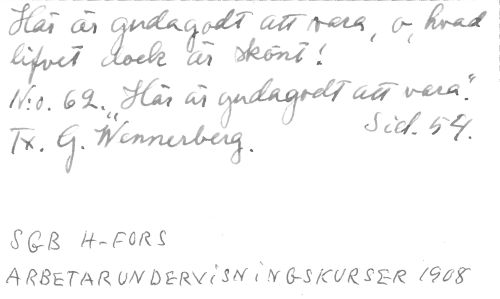 Här är gudagodt att vara, o, hvad
lifvet dock är skönt!
N:o. 62. "Här är gudagodt att vara."
Tx. G. Wennerberg. Sid. 54.
SGB H-FORS
ARBETARUNDERVISNINGSKURSER 1908